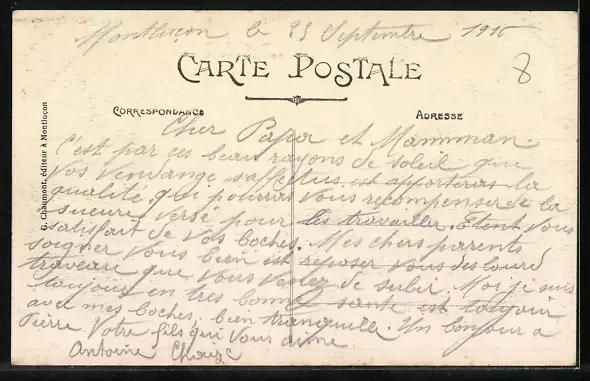 Montluçon le 25 Septembre 1916
CARTE POSTALE
8
CORRESPONDANCE
ADRESSE
G. Chaumont, éditeur à Montluçon
Cher Papa et Mamman.
C'est par ces beau rayons de soleil que
vos vendange saffectus est apporteras la
qualité qui pourras vous recompenser de la
sueure versé pour les travailler. Etent vous
satisfait de vos boches. Mes chers parents
soigner vous bien est reposer vous des lourd
traveau que vous venez de subir. Moi je suis
toujours en tres bonne santé est toujour
avec mes boches, bien tranquille. Un bonjour a
Pierre Votre fils qui vous aime.
Antoine